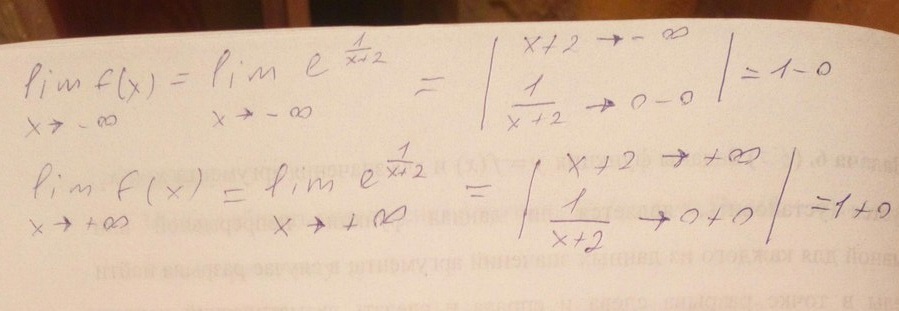 lim f(x) = lim e^{1/(x+2)} = | x+2 → -∞ ; 1/(x+2) → 0-0 | = 1-0
x → -∞ x → -∞
lim f(x) = lim e^{1/(x+2)} = | x+2 → +∞ ; 1/(x+2) → 0+0 | = 1+0
x → +∞ x → +∞